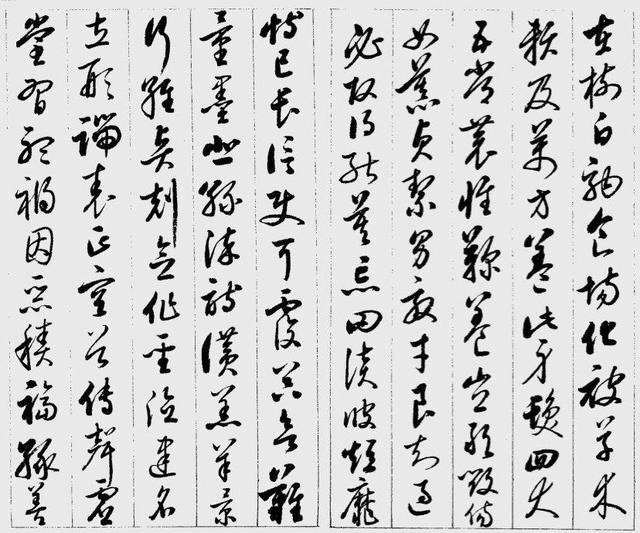 在樹白駒食場化被草木
賴及萬方蓋此身髮四大
五常恭惟鞠養豈敢毀傷
女慕貞絜男效才良知過
必改得能莫忘罔談彼短靡
恃己長信使可覆器欲難
量墨悲絲染詩讚羔羊景
行維賢剋念作聖德建名
立形端表正空谷傳聲虛
堂習聽禍因惡積福緣善